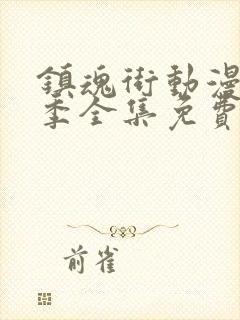 鎮魂街動漫
季全集免費
前雀